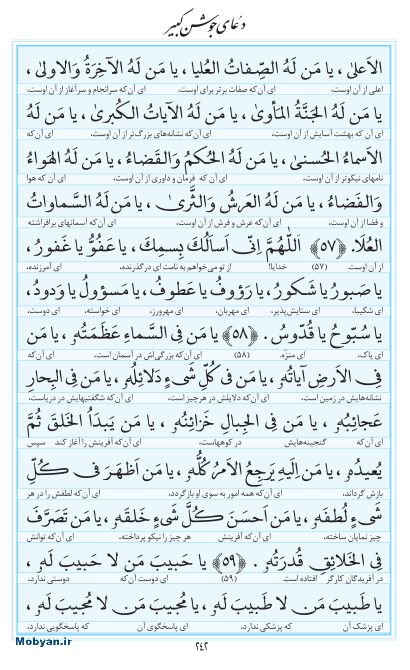 دعای جوشن کبیر
الاَعلىٰ، يا مَن لَهُ الصِّفاتُ العُليا، يا مَن لَهُ الآخِرَةُ وَالاولىٰ،
اعلی از آن اوست، ای آن‌که صفات برتر برای اوست، ای آن‌که سرانجام و سرآغاز از آن اوست،
يا مَن لَهُ الجَنَّةُ المَأوىٰ، يا مَن لَهُ الآياتُ الكُبرىٰ، يا مَن لَهُ
ای آن‌که بهشت آسایش از آن اوست، ای آن‌که نشانه‌های بزرگ‌تر از آن اوست، ای آن‌که
الاَسماءُ الحُسنىٰ، يا مَن لَهُ الحُكمُ وَالقَضاءُ، يا مَن لَهُ الهَواءُ
نامهای نیکوتر از آن اوست، ای آن‌که فرمان و داوری از آن اوست، ای آن‌که هوا
وَالفَضاءُ، يا مَن لَهُ العَرشُ وَالثَّرىٰ، يا مَن لَهُ السَّماواتُ
و فضا از آن اوست، ای آن‌که عرش و فرش از آن اوست، ای آن‌که آسمانهای برافراشته
العُلا. ﴿٥٧﴾ اَللّٰهُمَّ اِنّى اَسأَلُكَ بِسمِكَ، يا عَفُوُّ يا غَفورُ،
از آن اوست. (۵۷) خدایا! از تو می‌خواهم به نامت ای درگذرنده، ای آمرزنده،
يا صَبورُ يا شَكورُ، يا رَؤوفُ يا عَطوفُ، يا مَسؤولُ يا وَدودُ،
ای شکیبا، ای ستایش‌پذیر، ای مهربان، ای مهرورز، ای خواسته، ای دوست،
يا سُبّوحُ يا قُدّوسُ. ﴿٥٨﴾ يا مَن فِى السَّماءِ عَظَمَتُهُ، يا مَن
ای پاک، ای منزه. (۵۸) ای آن‌که بزرگی‌اش در آسمان است، ای آن‌که
فِى الاَرضِ آياتُهُ، يا مَن فى كُلِّ شَىءٍ دَلائِلُهُ، يا مَن فِى البِحارِ
نشانه‌هایش در زمین است، ای آن‌که دلایلش در هر چیز است، ای آن‌که شگفتیهایش در دریاست،
عَجائِبُهُ، يا مَن فِى الجِبالِ خَزائِنُهُ، يا مَن يَبدَأُ الخَلقَ ثُمَّ
ای آن‌که گنجینه‌هایش در کوههاست، ای آن‌که آفرینش را آغاز کند سپس
يُعيدُهُ، يا مَن اِلَيهِ يَرجِعُ الاَمرُ كُلُّهُ، يا مَن اَظهَرَ فى كُلِّ
بازش گرداند، ای آن‌که همه امور به سوی او بازگردد، ای آن‌که لطفش را در هر
شَىءٍ لُطفَهُ، يا مَن اَحسَنَ كُلَّ شَىءٍ خَلقَهُ، يا مَن تَصَرَّفَ
چیز نمایان ساخته، ای آن‌که آفرینش هر چیز را نیکو پرداخته، ای آن‌که توانش
فِى الخَلائِقِ قُدرَتُهُ. ﴿٥٩﴾ يا حَبيبَ مَن لا حَبيبَ لَهُ،
در آفریدگان کارگر افتاده است. (۵۹) ای دوست آن که دوستی ندارد،
يا طَبيبَ مَن لا طَبيبَ لَهُ، يا مُجيبَ مَن لا مُجيبَ لَهُ،
ای پزشک آن که پزشکی ندارد، ای پاسخگوی آن که پاسخگویی ندارد،
۲۴۲
Mobyan.ir